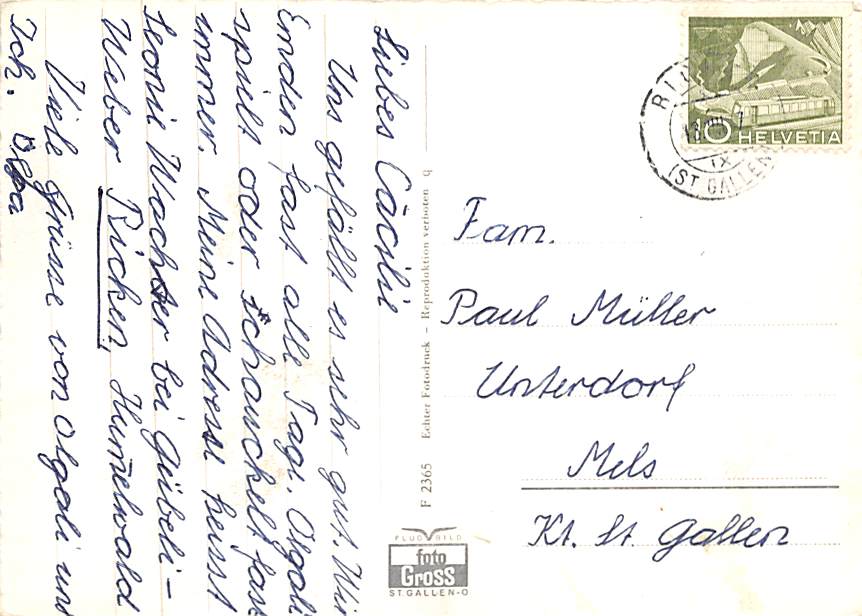 Liebes Cäcilie
Uns gefällt es sehr gut. Wir
Emden fast alle Tage. Olgali
spielt oder schauckelt fast
immer. Meine Adresse heisst
Leonie Wachter bei Gübeli-
Weber Ricken, Humelwald
Viele Grüsse von Olgali und
Ich. Olga
F 2365 Echter Fotodruck – Reproduktion verboten q
FLUGBILD
foto
GROSS
ST. GALLEN-O
10 HELVETIA
(ST. GALLEN)
Fam.
Paul Müller
Unterdorf
Mels
Kt. St. Gallen